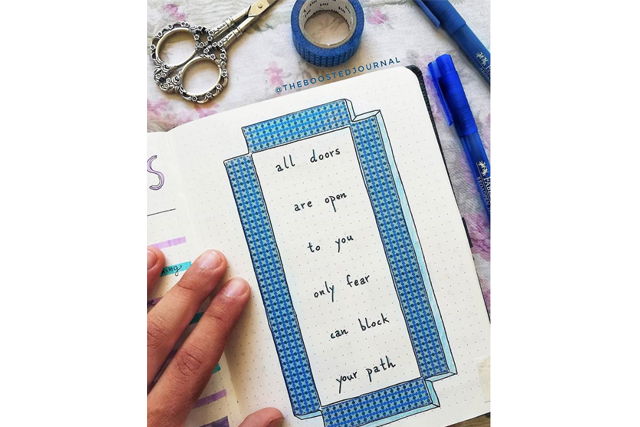 @THEBOOSTEDJOURNAL
all doors
are open
to you
only fear
can block
your path